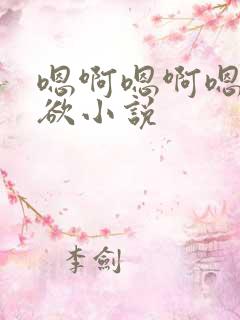 嗯啊嗯啊嗯
欲小说
李劍